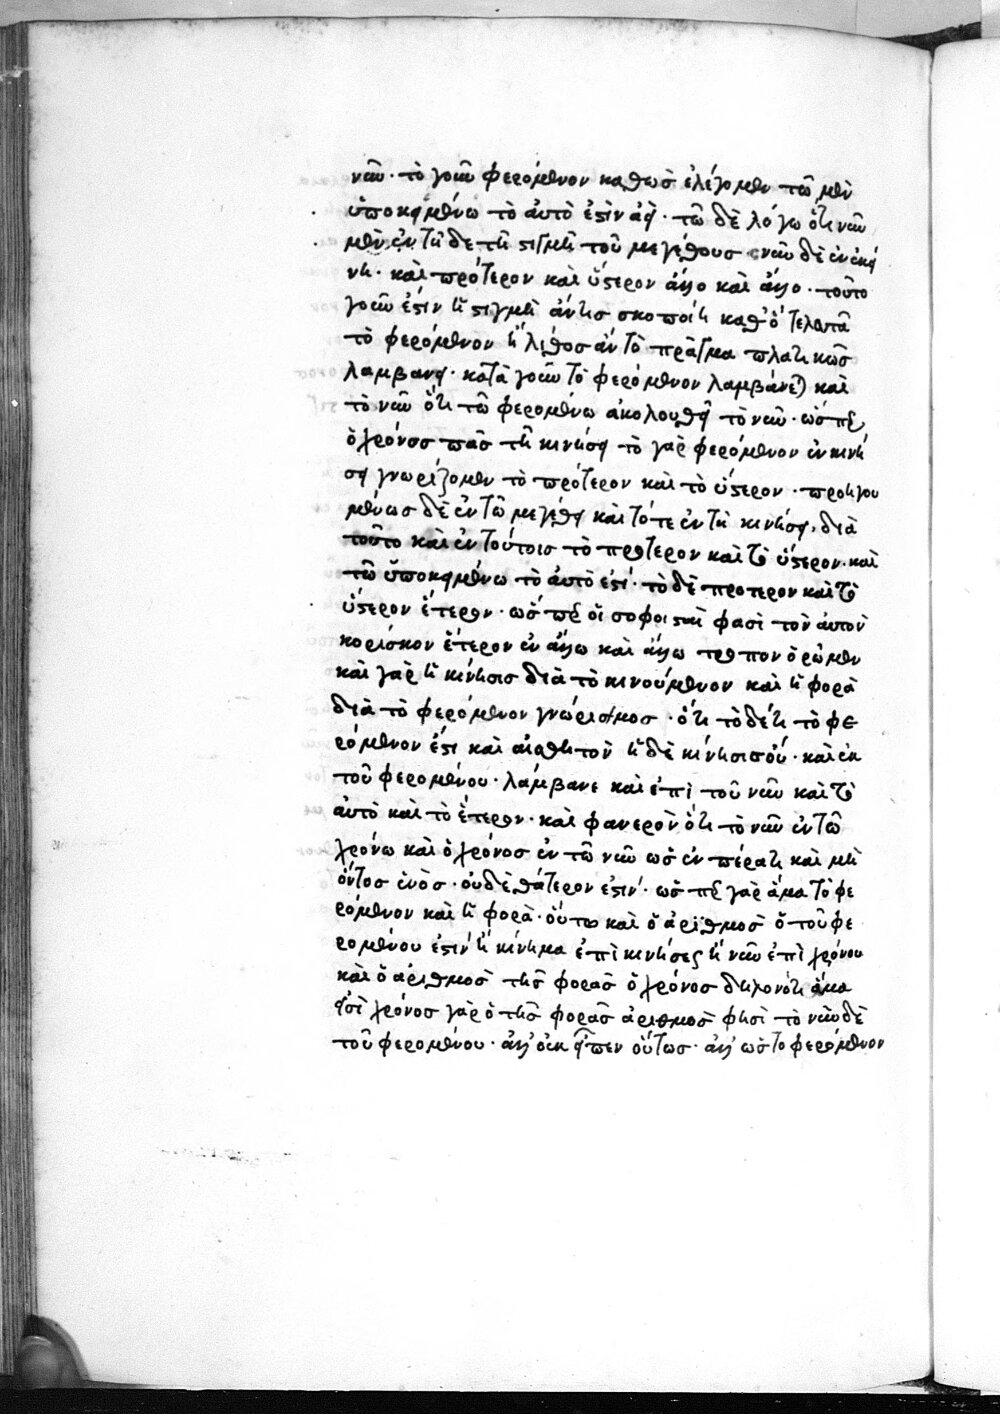 νῦν· τὸ γοῦν φερόμενον καθὼς ἐλέγομεν τῶ μὲν
ὑποκειμένω τὸ αὐτὸ ἐστὶν ἀεὶ· τῶ δὲ λόγω ὅτι νῦν
μὲν ἐν τῆδε τῆ στιγμῆ τοῦ μεγέθους νῦν δὲ ἐν ἐκεί
νη· καὶ πρότερον καὶ ὕστερον ἄλλο καὶ ἄλλο· τοῦτο
γοῦν ἐστὶν ἢ στιγμὴ ἄν τις σκοποίη καθ' ὃ τελευτᾶ
τὸ φερόμενον ἢ λίθος ἂν τὸ πρᾶγμα πλατικῶς
λαμβάνει· κατὰ γοῦν τὸ φερόμενον λαμβάνεται καὶ
τὸ νῦν ὅτι τῶ φερομένω ἀκολουθεῖ τὸ νῦν· ὥσπερ
ὁ χρόνος πᾶς τῆ κινήσει τὸ γὰρ φερόμενον ἐν κινή
σει γνωρίζομεν τὸ πρότερον καὶ τὸ ὕστερον· προηγου
μένως δὲ ἐν τῶ μεγέθει καὶ τότε ἐν τῆ κινήσει· διὰ
τοῦτο καὶ ἐν τούτοις τὸ πρότερον καὶ τὸ ὕστερον· καὶ
τῶ ὑποκειμένω τὸ αὐτὸ ἐστί· τὸ δὲ πρότερον καὶ τὸ
ὕστερον ἕτερον· ὥσπερ οἱ σοφισταί φασὶ τὸν αὐτὸν
κορίσκον ἕτερον ἐν ἄλλω καὶ ἄλλω τρόπον ὁρῶμεν
καὶ γὰρ ἡ κίνησις διὰ τὸ κινούμενον καὶ ἡ φορὰ
διὰ τὸ φερόμενον γνώρισμος· ὅτι τὸ δέ τι τὸ φε
ρόμενον ἐστι καὶ αἰσθητὸν ἡ δὲ κίνησις οὔ· καὶ ἐκ
τοῦ φερομένου· λάμβανε καὶ ἐπὶ τοῦ νῦν καὶ τὸ
αὐτὸ καὶ τὸ ἕτερον· καὶ φανερὸν ὅτι τὸ νῦν ἐν τῶ
χρόνω καὶ ὁ χρόνος ἐν τῶ νῦν ὡς ἐν πέρατι καὶ μὴ
ὄντος ἑνὸς· οὐδὲ θάτερον ἐστιν· ὥσπερ γὰρ ἅμα τὸ φε
ρόμενον καὶ ἡ φορὰ· οὕτω καὶ ὁ ἀριθμὸς ὁ τοῦ φε
ρομένου ἐστὶν ἢ κίνημα ἐπὶ κινήσεως ἢ νῦν ἐπὶ χρόνου
καὶ ὁ ἀριθμὸς τῆς φορᾶς ὁ χρόνος δηλονότι ἅμα
εἰσὶ χρόνος γὰρ ὁ τῆς φορᾶς ἀριθμὸς φησὶ τὸ νῦν δὲ
τοῦ φερομένου· ἀλλ' οὐκ εἶπεν οὕτως· ἀλλ' ὡς τὸ φερόμενον